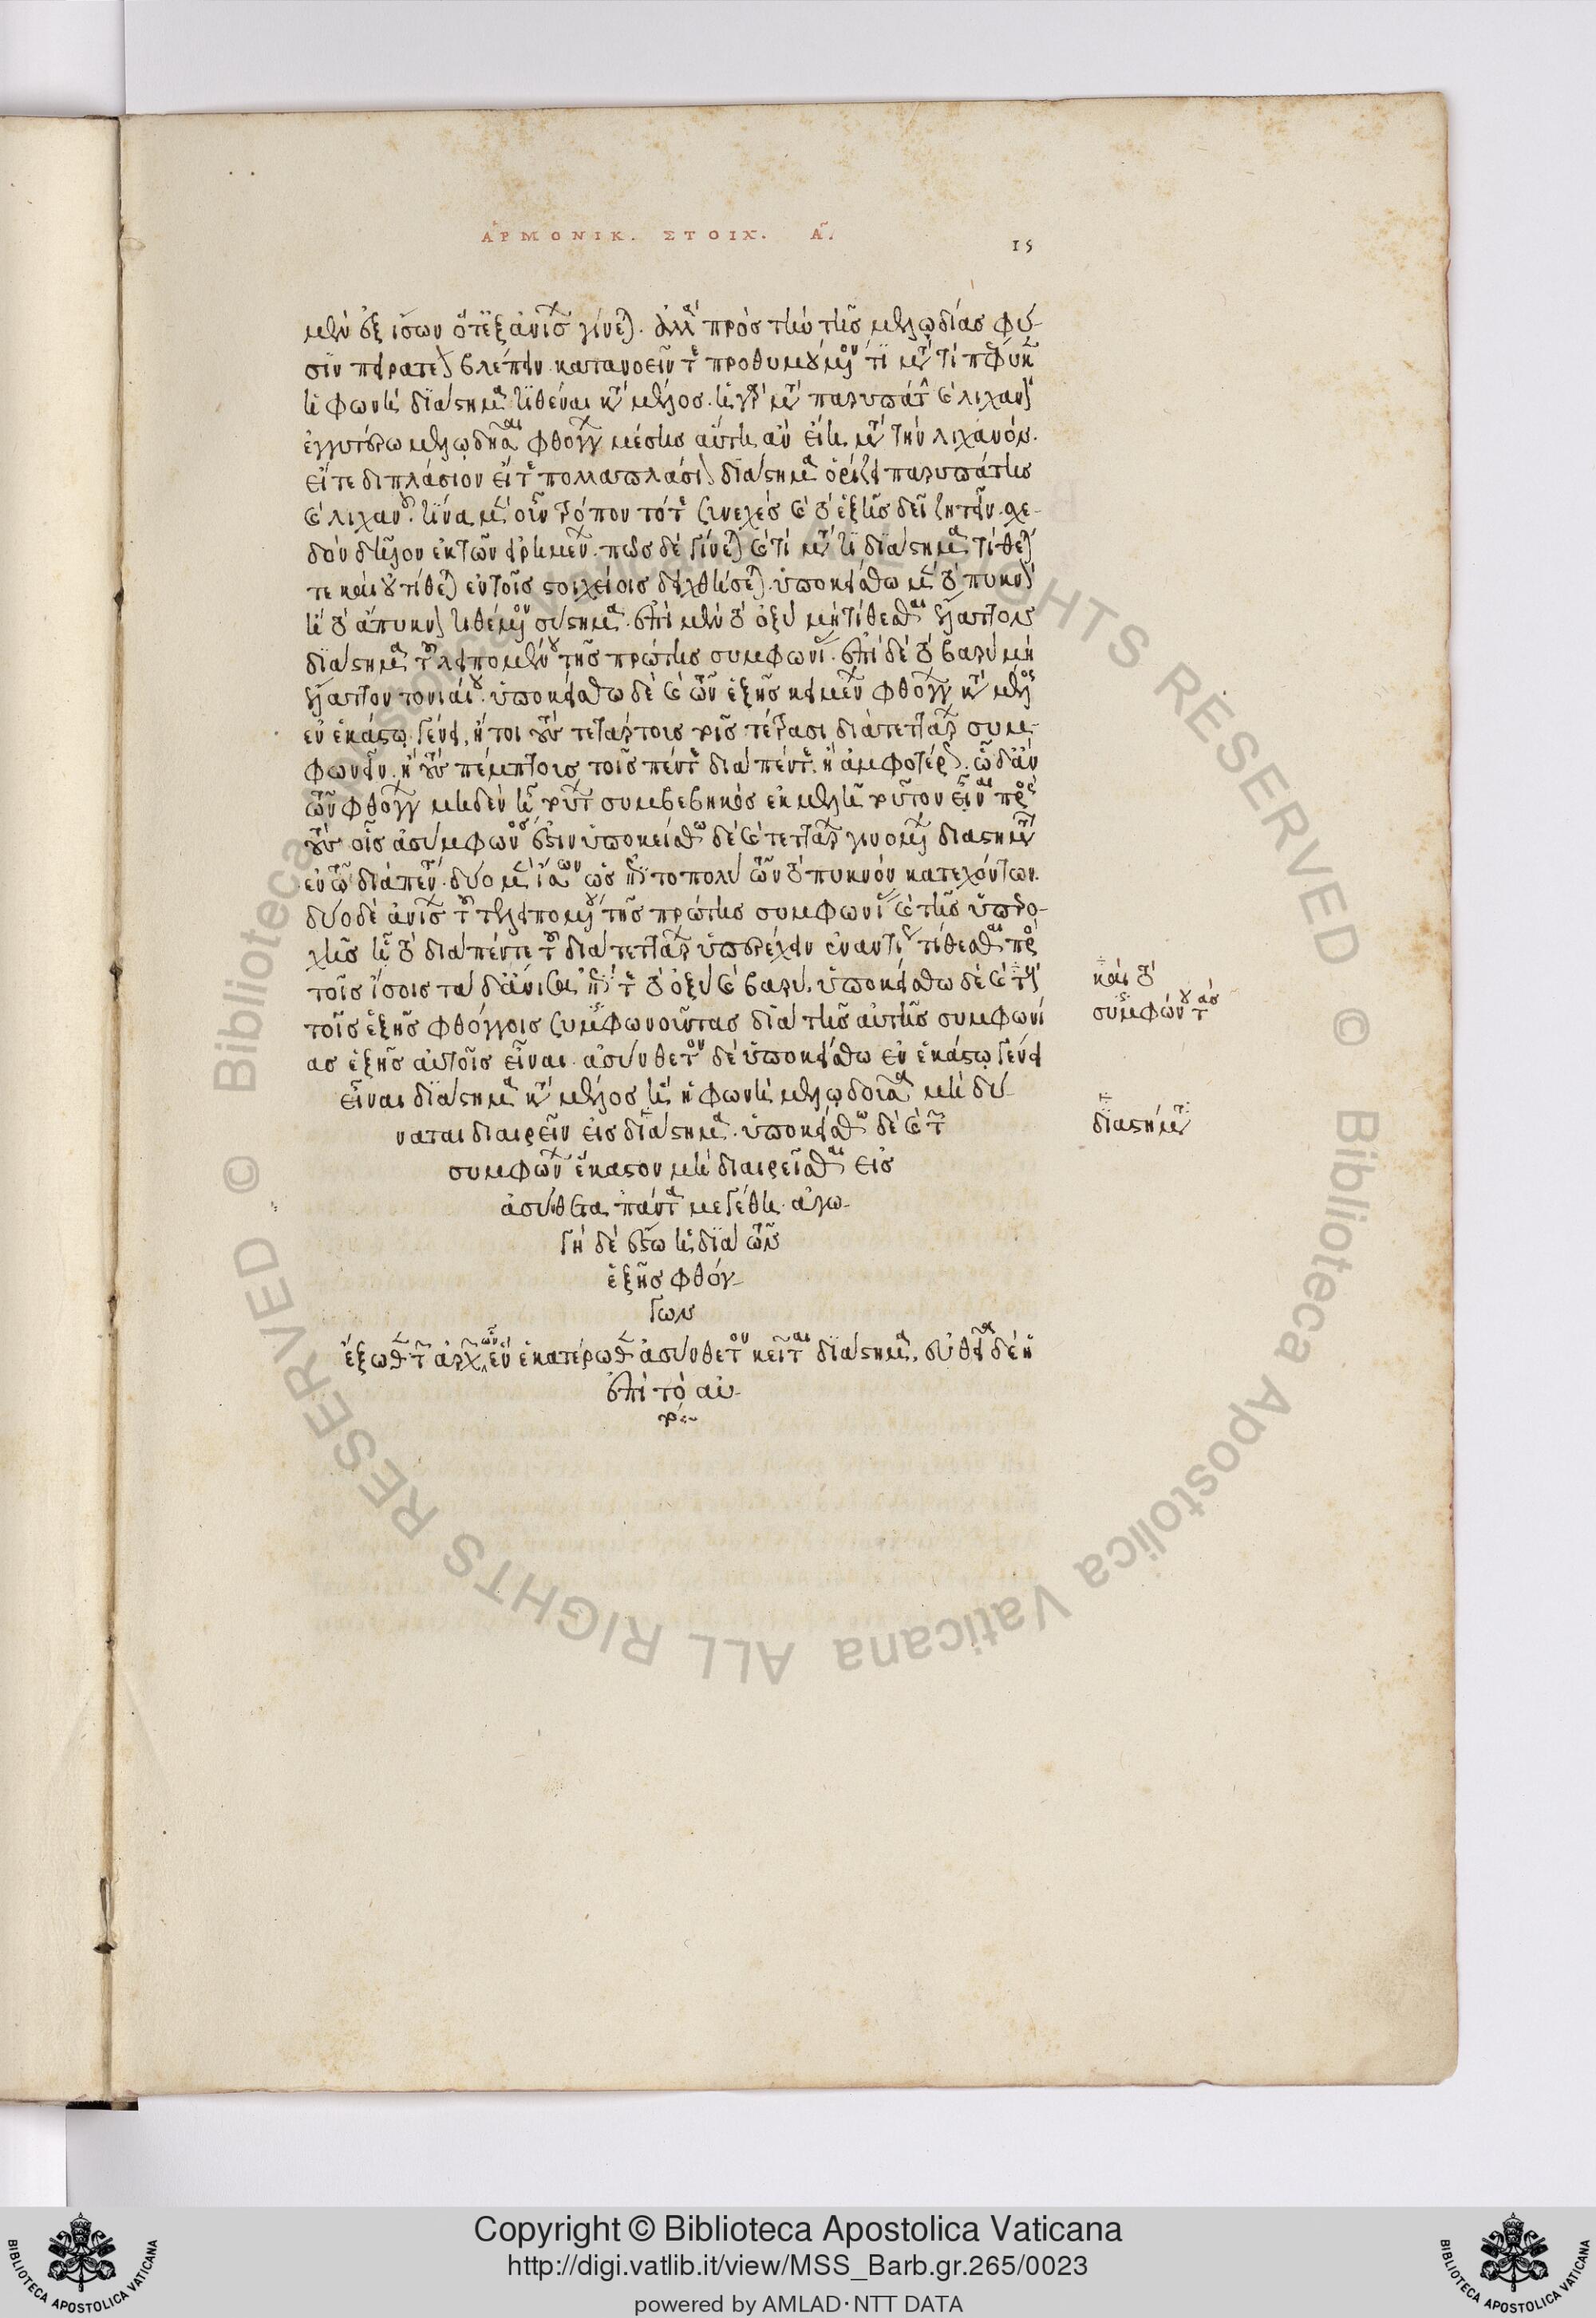 ἉΡΜΟΝΙΚ. ΣΤΟΙΧ. Α.
15
μὲν ἐξ ἴσων ὁτὲ ἐξ ἀνίσ γίνε. ἀλλ πρὸς τὴν τῆς μελῳδίας φύ-
σιν πειρατε βλέπειν κατανοεῖν τ προθυμουμ τί μετ τί πέφυκ
ἡ φωνὴ διάστημ τιθέναι κατ μέλος. ἡ γὰρ μετ παρυπάτ καὶ λιχαν
ἐγγυτέρω μελῳδῆσαι φθόγγ μέσης αὕτη αὖ εἴη μετ τὴν λιχανόν.
εἴτε διπλάσιον εἴτε πολλαπλάσι διάστημ ὁρίζει παρυπάτης
καὶ λιχανοῦ. τίνα μ οὖν τρόπον τό τε συνεχὲς καὶ τὸ ἑξῆς δεῖ ζητεῖν σχε-
δὸν δῆλον ἐκ τῶν εἰρημέν. πῶς δὲ γίνε καὶ τί μετ τί διάστημ τίθε
τε καὶ οὐ τίθε ἐν τοῖς στοιχείοις δειχθήσε. ὑποκείσθω μ τὸ πυκν
ἢ τὸ ἄπυκν τιθεμ σύστημ. ἐπὶ μὲν τὸ ὀξὺ μὴ τίθεσθαι ἔλαττον
διάστημ τοῦ λειπομένου τῆς πρώτης συμφωνί. ἐπὶ δὲ τὸ βαρὺ μὴ
ἔλαττον τονιαίου. ὑποκείσθω δὲ καὶ τῶν ἑξῆς κειμέν φθόγγ κατ μέλος
ἐν ἑκάστῳ γένει, ἤτοι τοὺς τετάρτοις τοῖς τέτρασι διὰ τεττάρ συμ-
φωνεῖν. ἢ τοὺς πέμπτοις τοῖς πέντε διὰ πέντε. ἢ ἀμφοτέρ. ᾧ δ' ἂν
τῶν φθόγγ μηδὲν ᾖ τούτ συμβεβηκὸς ἐκμελῆ τοῦτον εἶναι πρὸς
τοὺς οἷς ἀσύμφων ἐστιν ὑποκείσθω δὲ καὶ τεττάρ γινομ διαστημάτ
ἐν τῷ διὰ πέντ. δύο μ ἴσων ὡς ἐπὶ τὸ πολὺ τῶν τὸ πυκνὸν κατεχόντων.
δύο δὲ ἀνίσ τοῦ τε λειπομ τῆς πρώτης συμφωνί καὶ τῆς ὑπερο-
χῆς ᾗ τὸ διὰ πέντε τοῦ διὰ τεττάρ ὑπερέχειν ἐναντί τίθεσθαι πρὸς
τοῖς ἴσοις τὰ δ' ἄνισα ἐπί τε τὸ ὀξὺ καὶ βαρύ. ὑποκείσθω δὲ καὶ τ
τοῖς ἑξῆς φθόγγοις συμφωνοῦντας διὰ τῆς αὐτῆς συμφωνί
ας ἑξῆς αὐτοῖς εἶναι. ἀσύνθετον δὲ ὑποκείσθω ἐν ἑκάστῳ γένει
εἶναι διάστημ κατ μέλος ὃ ἡ φωνὴ μελῳδοῦσα μὴ δύ-
ναται διαιρεῖν εἰς διάστημ. ὑποκείσθω δὲ καὶ τ
συμφών ἕκαστον μὴ διαιρεῖσθαι εἰς
ἀσύνθετα πάντα μεγέθη. ἀγω-
γὴ δὲ ἔστω ἡ διὰ τῶν
ἑξῆς φθόγ-
γων
ἔξωθεν τ ἀρχ ὧν ἑν ἑκατέρωθεν ἀσύνθετον κεῖται διάστημα, εὐθεῖα δὲ ἡ
ἐπὶ τὸ αὐ-
τό
καὶ τὸ
συμφώνουντας
διαστήματ